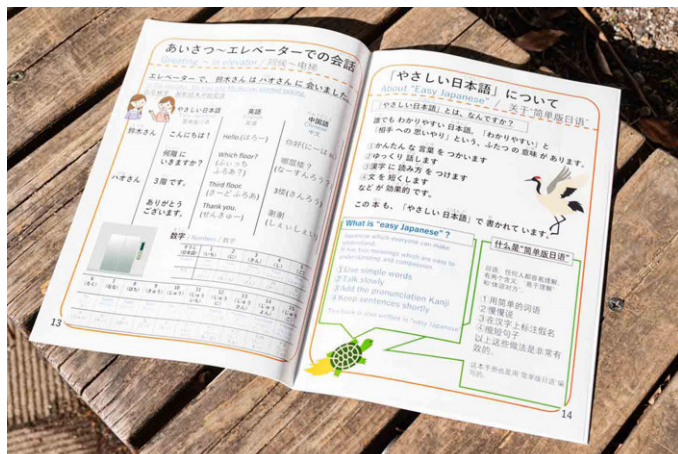 あいさつ〜エレベーターでの会話
Greeting 〜 in elevator / 问候〜电梯
エレベーターで、鈴木さんは ハオさんに 会いました。
やさしい日本語
英語
中国語
中文
鈴木さん
こんにちは！
Hello.(はろー)
你好(にーはお
何階に
いきますか？
Which floor?
(ふぃっち
ふろあ？)
哪层楼？
(なーすんろう？
ハオさん
3階です。
Third floor.
(さーどふろあ)
3楼(さんろう)
ありがとう
ございます。
Thank you.
(せんきゅー)
谢谢
(しぇぃしぇぃ
数字 / Numbers / 数字
13
「やさしい日本語」について
About "Easy Japanese" / 关于"简单版日语"
「やさしい日本語」とは、なんですか？
誰でも わかりやすい 日本語。「わかりやすい」と
「相手への 思いやり」という、ふたつの 意味が あります。
①かんたんな 言葉を つかいます
②ゆっくり 話します
③漢字に 読み方を つけます
④文を 短くします
などが 効果的です。
この本も、「やさしい日本語」で 書かれています。
What is "easy Japanese"？
Japanese which everyone can make
understand.
It has two meanings which are easy to
understanding and compassion.
①Use simple words
②Talk slowly
③Add the pronunciation Kanji
④Keep sentences shortly
This book is also written in "easy Japanese"
什么是"简单版日语"
①用简单的词语
②慢慢说
③在汉字上标注假名
④缩短句子
以上这些做法是非常有
效的。
这本手册也是用"简单版日语"编
写的。
14